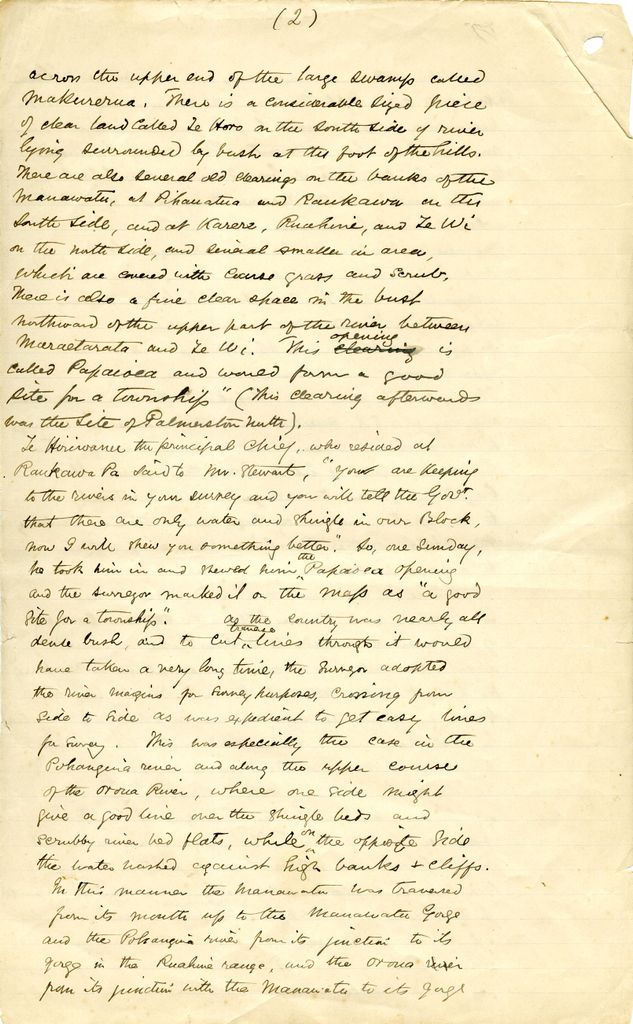 (2)
across the upper end of the large swamp called
Makurerua. There is a considerable sized piece
of clear land called Te Horo on the South Side of river
lying surrounded by bush at the foot of the hills.
There are also several old clearings on the banks of the
Manawatu, at Pihauatua and Raukawa on the
South Side, and at Karere, Ruahine, and Te Wi
on the north side, and several smaller in area,
which are covered with coarse grass and scrub.
There is also a fine clear space in the bush
northward of the upper part of the river between
Maraetarata and Te Wi. This clearing opening is
called Papaioea and would form a good
site for a township" (This clearing afterwards
was the Site of Palmerston North).
Te Hirawanu the principal Chief, who resided at
Raukawa Pa said to Mr. Stewart, "You are keeping
to the rivers in your survey and you will tell the Govt.
that there are only water and shingle in our Block,
now I will shew you something better". So, one Sunday,
he took him in and shewed him the Papaioea opening
and the surveyor marked it on the maps as "a good
site for a township". As the country was nearly all
dense bush, and to cut traverse lines through it would
have taken a very long time, the Surveyor adopted
the river margins for Survey purposes, crossing from
side to side as was expedient to get easy lines
for survey. This was especially the case in the
Pohangina river and along the upper course
of the Oroua River, where one side might
give a good line over the shingle beds and
scrubby river bed flats, while on the opposite side
the water washed against high banks & cliffs.
In this manner the Manawatu was traversed
from its mouth up to the Manawatu Gorge
and the Pohangina river from its junction to its
gorge in the Ruahine range, and the Oroua river
from its junction with the Manawatu to its gorge